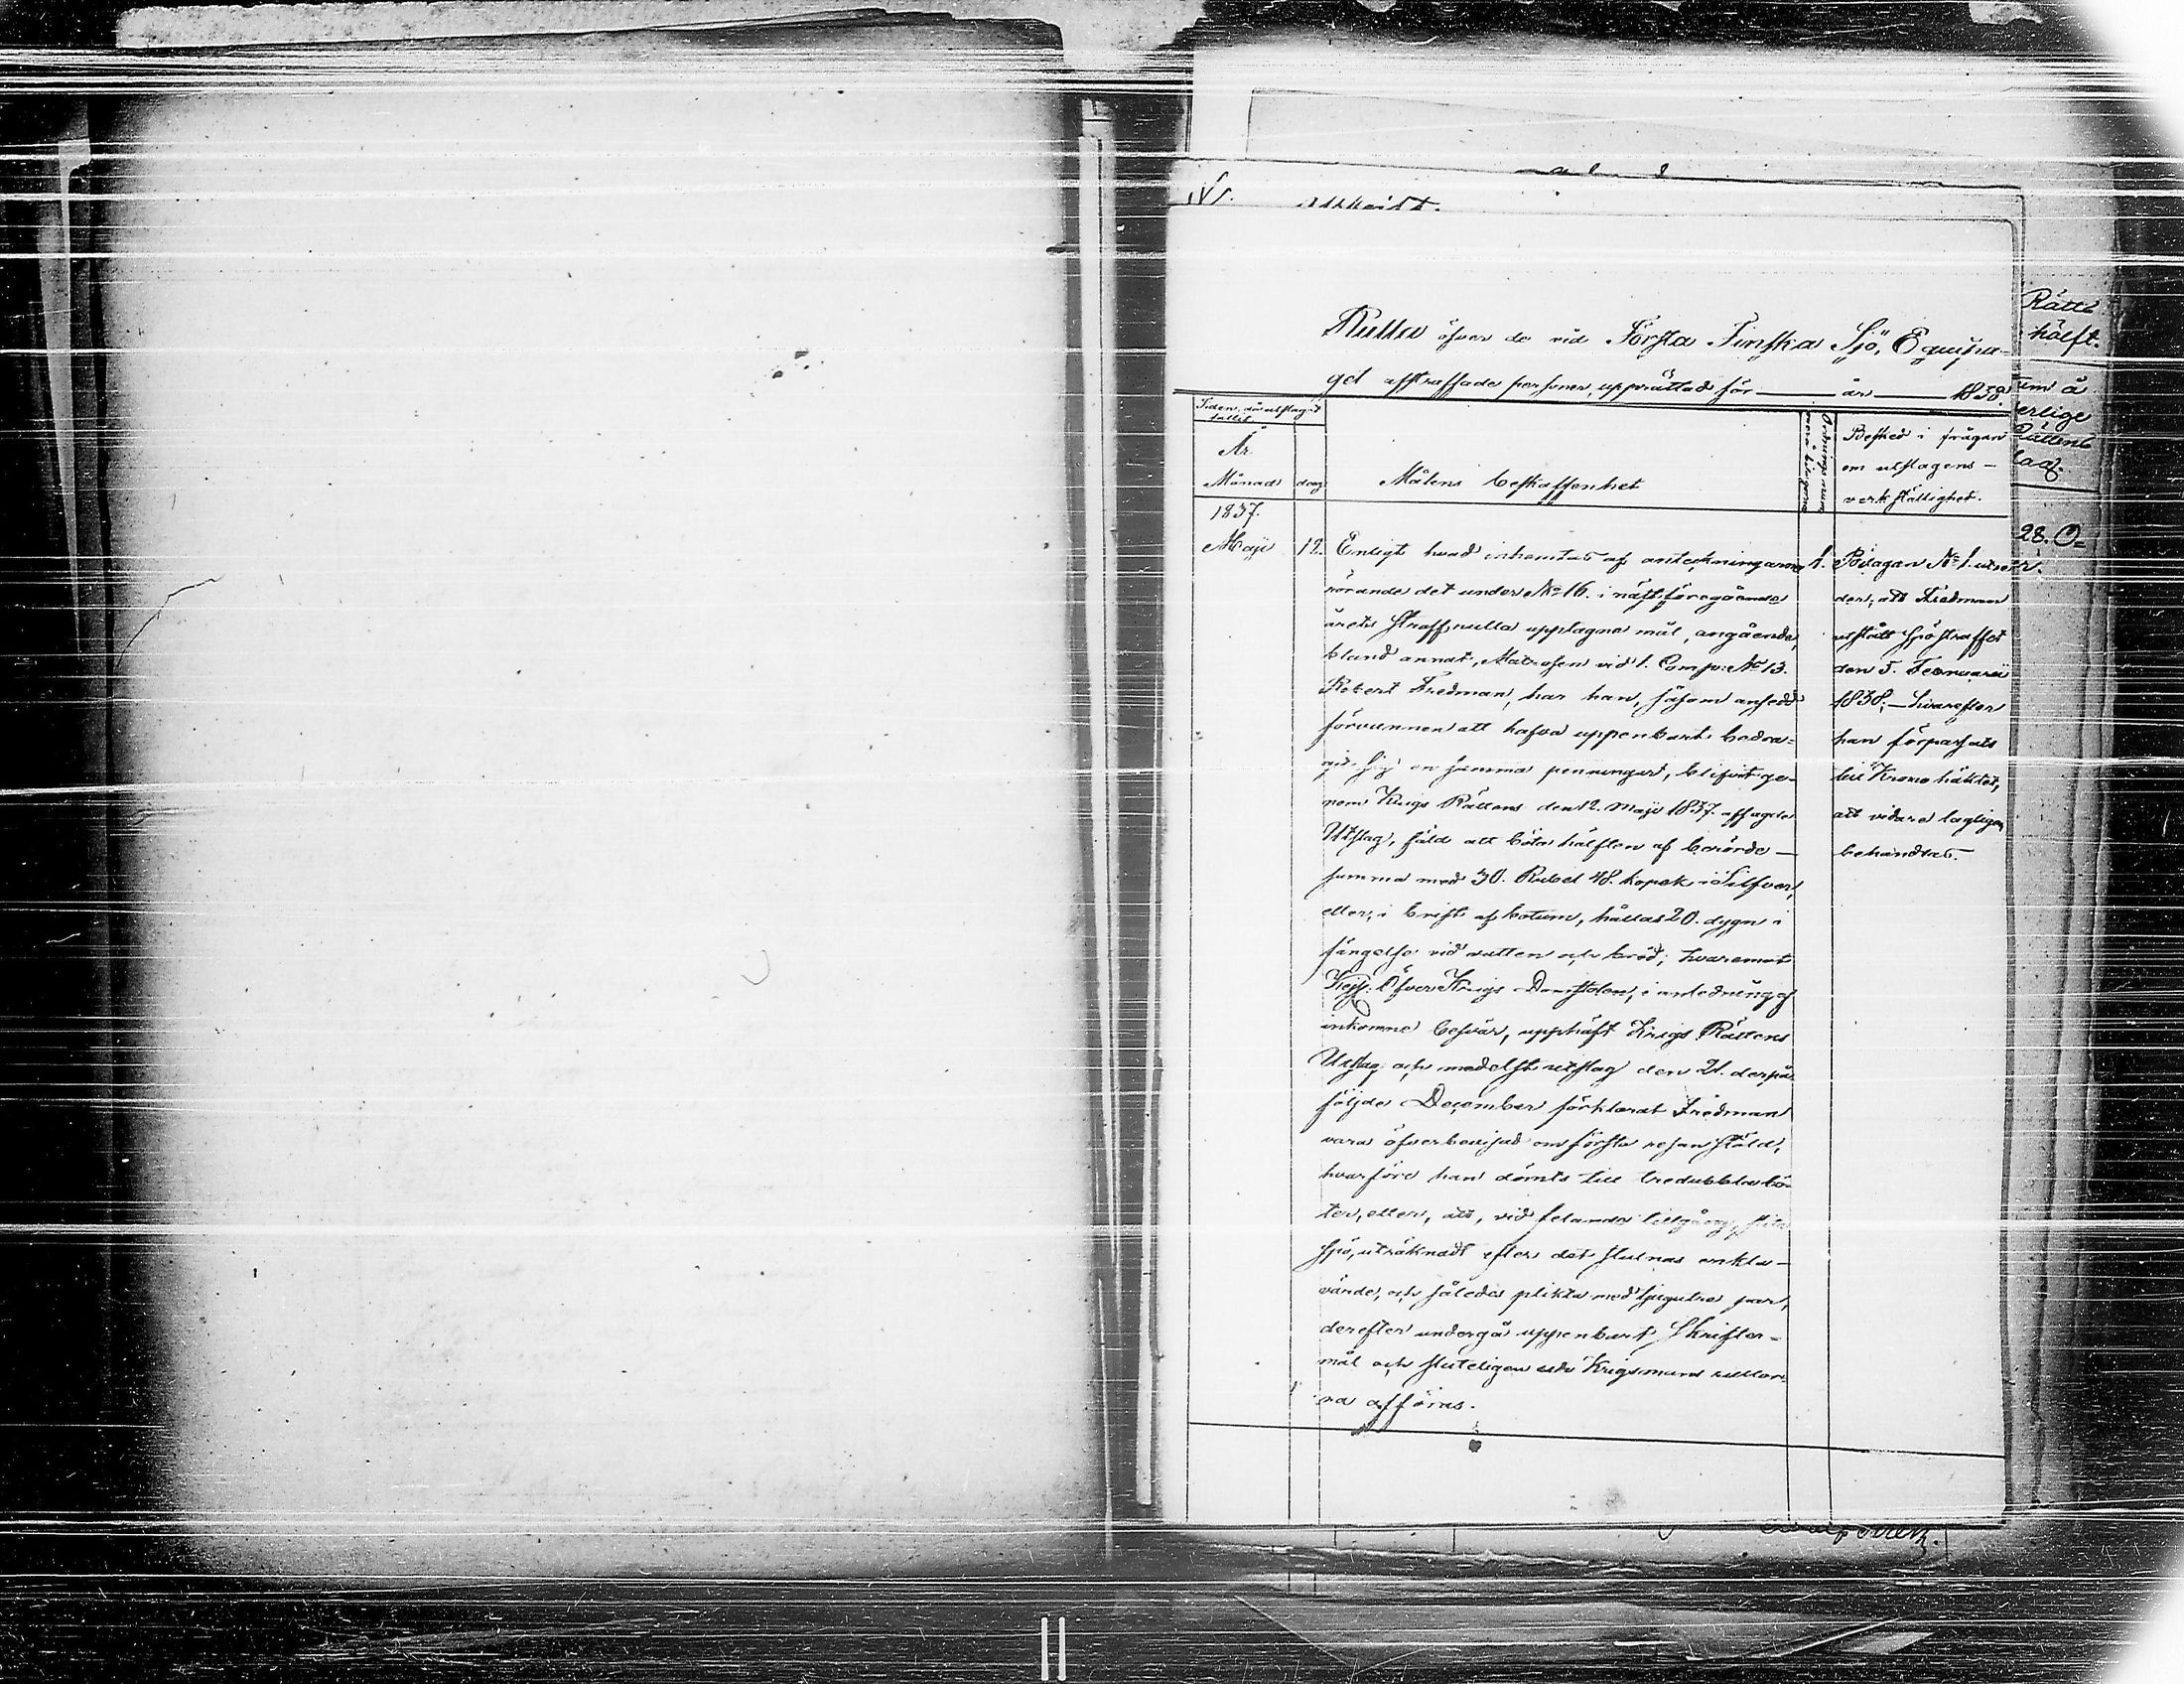 Rulla öfver de vid Första Finska Sjö, Equipa-
get afstraffade personer, upprättad för år 1838.
Tiden, då utslaget
fallit.
År.
Månad dag
Målens beskaffenhet
Ordnings num
Besked i frågan
om utslagens
verkställighet.
1837.
Maji 12. Enligt hvad inhemtas af anteckningarna
rörande det under No 16. i näst föregående
årets straffrulla upptagna mål, angående,
bland annat, Matrosen vid 1. Comp: No 13.
Robert Fredman, har han, såsom ansedd
förvunnen att hafva uppenbart bedra-
git sig en summa penningar, blifvit ge-
nom Krigs Rättens den 12. Maji 1837. afsagde
Utslag, fäld att böta hälften af berörde
summa med 30. Rubel 48. kopek i Silfver,
eller, i brist af botum, hållas 20. dygn i
fängelse vid vatten och bröd; hvaremot
Kejs: Öfver Krigs Domstolen, i anledning af
inkomne besvär, upphäft Krigs Rättens
Utslag och medelst utslag den 21. derpå
följde December förklarat Fredman
vara öfverbevisad om första resan stöld,
hvarföre han dömts till tredubbla bö-
ter, eller, att, vid felande tillgång, slita
spö, uträknadt efter det stulnas enkla
värde, och således plikta med tjugutre par,
derefter undergå uppenbart Skrifter-
mål och sluteligen utur Krigsmans rullor-
na afföras.
1. Bilagan No 1. utvi-
der, att Fredman
utstått spöstraffet
den 5. Februarii
1838; hvarefter
han förpassats
till Krono häktet,
att vidare lagligen
behandlas.
Rätts
hälft.
um å
erlige
Rättens
lag.
28. O=